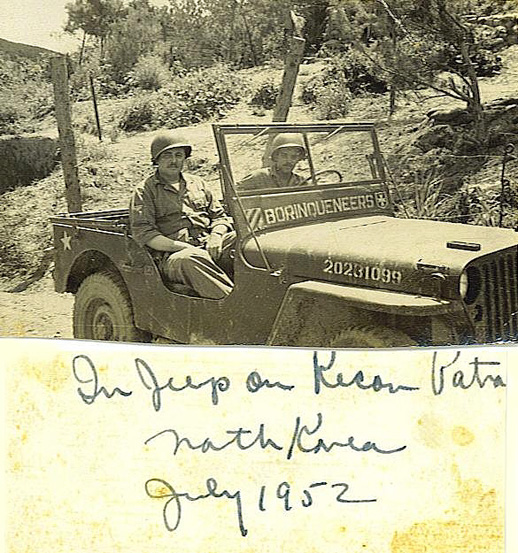 BORINQUENEERS
20231099
In Jeep on Recon Patra
North Korea
July 1952